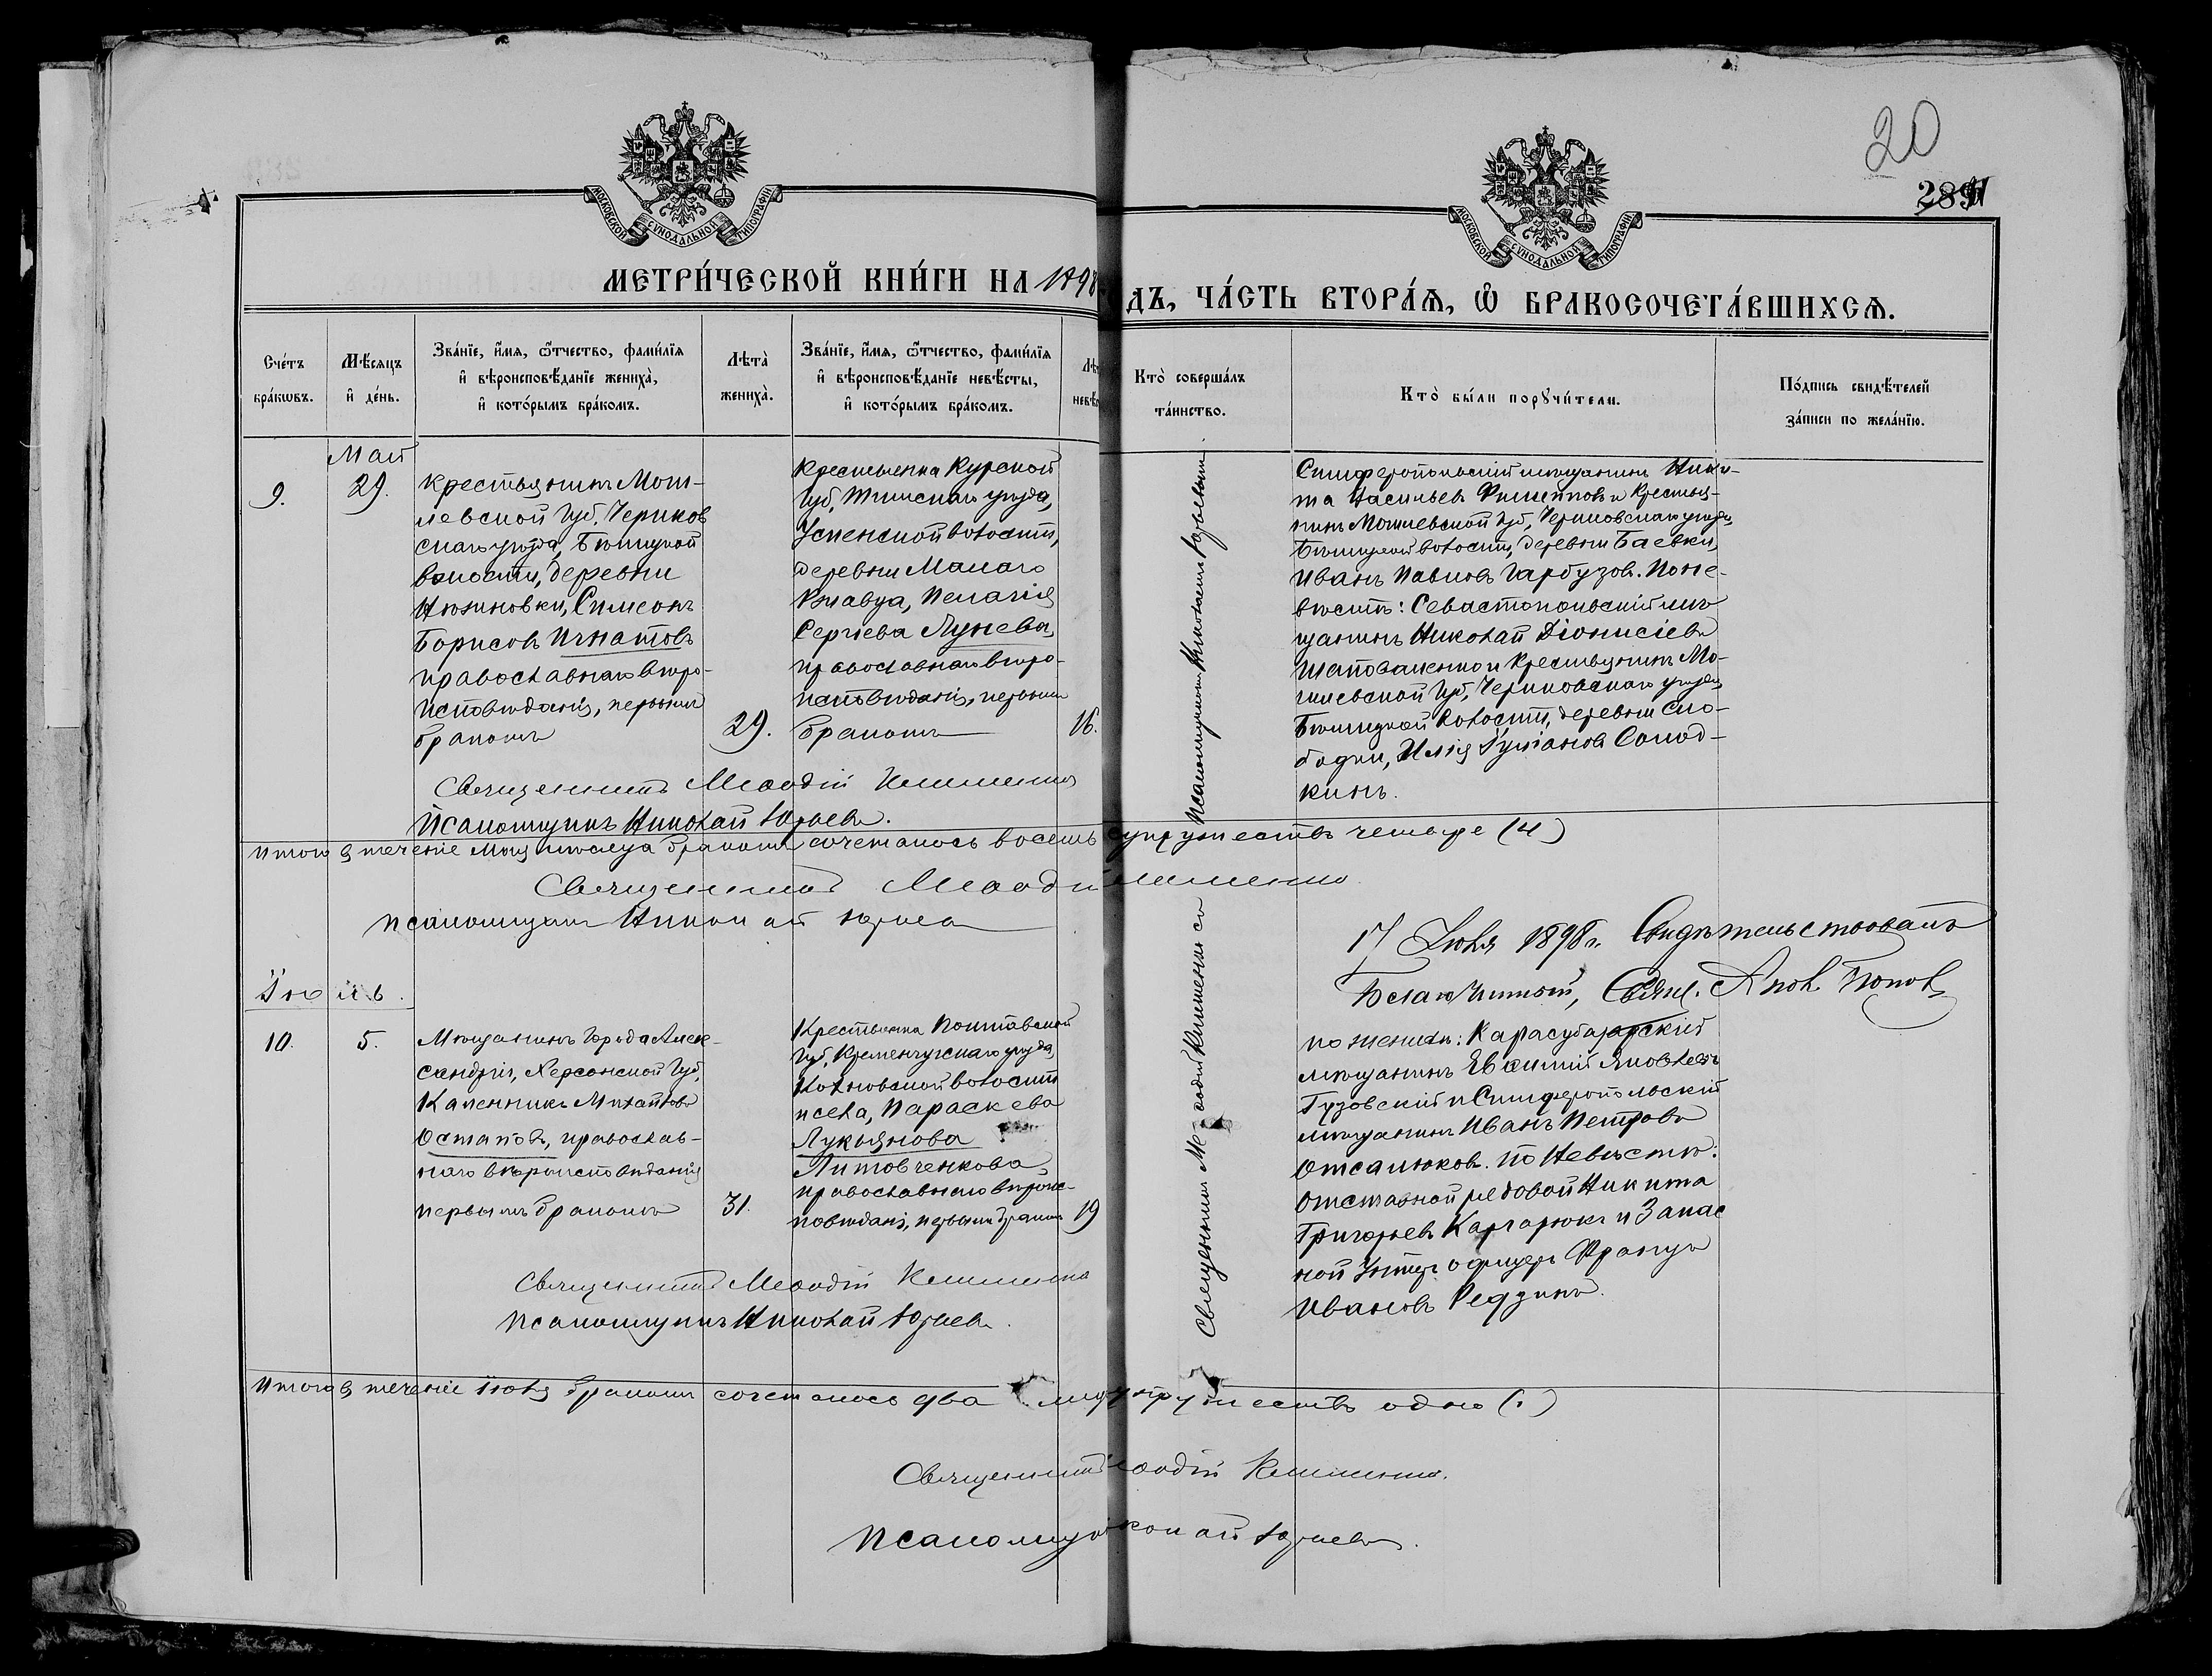 20
289
МОСКОВСКОЙ СУНОДАЛЬНОЙ ТИПОГРАФІИ
МОСКОВСКОЙ СУНОДАЛЬНОЙ ТИПОГРАФІИ
МЕТРИ́ЧЕСКОЙ КНИ́ГИ НА 1898
ДЪ, ЧА́СТЬ ВТОРА́Ѧ, Ѿ БРАКОСОЧЕТА́ВШИХСѦ.
Сче́тъ бра́кѡвъ.
Мѣ́сяцъ и҆ де́нь.
Зва́нїе, и҆́мѧ, ѻ҆́тчество, фами́лїѧ и҆ вѣроисповѣ́данїе жениха̀, и҆ кото́рымъ бра́комъ.
Лѣта̀ жениха̀.
Зва́нїе, и҆́мѧ, ѻ҆́тчество, фами́лїѧ и҆ вѣроисповѣ́данїе невѣ́сты, и҆ кото́рымъ бра́комъ.
Кто̀ соверша́лъ та́инство.
Кто̀ бы́ли порꙋчи́тели.
По́дпись свидѣ́телей за́писи по жела́нїю.
9.
Май
29.
Крестьянинъ Моги-
левской Губ. Чериков
скаго уѣзда,
волости, деревни
Симеонъ
Борисовъ Игнатовъ
православнаго вѣро-
исповѣданія, первымъ
бракомъ
29.
Крестьянка Курской
Губ. Тимскаго уѣзда,
Успенской волости,
деревни Малаго
Ржавца, Пелагія
Сергіева Лунева,
православнаго вѣро-
исповѣданія, первымъ
бракомъ
16.
Симферопольскій мѣщанинъ Ники-
та Васильевъ Филипповъ и Крестья-
нинъ Могилевской Губ, Чериковскаго уѣзда,
волости, деревни Баевки,
Иванъ Павловъ Гарбузовъ. По не-
вѣстѣ: Севастопольскій мѣ-
щанинъ Николай Діонисіевъ
Шаповаленко и Крестьянинъ Мо-
гилевской Губ, Чериковскаго уѣзда,
волости, деревни Сло-
бодки, Илія Солод-
кинъ.
Священникъ Меѳодій Клименко
Псаломщикъ Николай Юрьевъ.
Священникъ Меѳодій Клименко со Псаломщикомъ Николаемъ Юрьевымъ
Итого въ теченіе Мая мѣсяца бракомъ сочеталось восемь супружествъ четыре (4)
Священникъ Меѳодій Клименко
Псаломщикъ Николай Юрьевъ
17 Іюля 1898 г. Свидѣтельствовалъ
Благочинный, Свящ. Яковъ Поповъ
Іюль.
10.
5.
Мѣщанинъ Города Алек-
сандріи, Херсонской Губ,
Каленникъ Михайловъ
Остаповъ, православ-
наго вѣроисповѣданія
первымъ бракомъ
31.
Крестьянка Полтавской
Губ, Кременчугскаго уѣзда,
волости
и села, Параскева
Лукьянова
Литовченкова,
православнаго вѣроис-
повѣданія, первымъ бракомъ
19
по женихѣ: Карасубазарскій
мѣщанинъ Евѳимій Яковлевъ
Гузовскій и Симферопольскій
мѣщанинъ Иванъ Петровъ
Отсалюковъ. по Невѣстѣ:
отставной рядовой Никита
Григорьевъ Каргарюкъ и Запас
ной Унтеръ офицеръ Францъ
Ивановъ
Священникъ Меѳодій Клименко
Псаломщикъ Николай Юрьевъ.
Итого въ теченіе Іюля бракомъ сочеталось два супружествъ одно (1)
Священникъ Меѳодій Клименко.
Псаломщикъ Николай Юрьевъ.